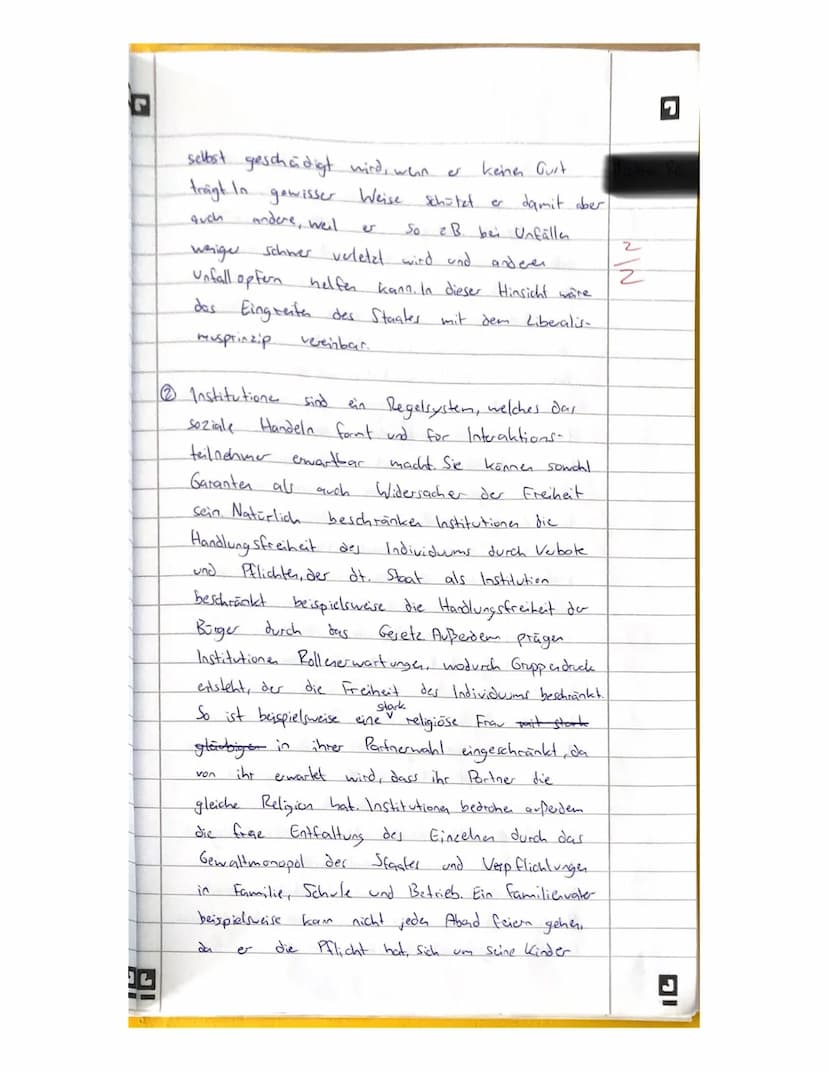 selbst geschädigt wird, wenn er keinen Gurt
trägt. In gewisser Weise schützt er damit aber
auch andere, weil er so z.B. bei Unfällen
weniger schwer verletzt wird und anderen
Unfallopfern helfen kann. In dieser Hinsicht wäre
das Eingreifen des Staates mit dem Liberalis-
musprinzip vereinbar.
2
2
② Institutionen sind ein Regelsystem, welches das
soziale Handeln formt und für Interaktions-
teilnehmer erwartbar macht. Sie können sowohl
Garanten als auch Widersacher der Freiheit
sein. Natürlich beschränken Institutionen die
Handlungsfreiheit des Individuums durch Verbote
und Pflichten, der dt. Staat als Institution
beschränkt beispielsweise die Handlungsfreiheit der
Bürger durch das Gesetz. Außerdem prägen
Institutionen Rollenerwartungen, wodurch Gruppendruck
entsteht, der die Freiheit des Individuums beschränkt.
So ist beispielsweise eine stark religiöse Frau mit stark
gläubigen in ihrer Partnerwahl eingeschränkt, da
von ihr erwartet wird, dass ihr Partner die
gleiche Religion hat. Institutionen bedrohen außerdem
die freie Entfaltung des Einzelnen durch das
Gewaltmonopol des Staates und Verpflichtungen
in Familie, Schule und Betrieb. Ein Familienvater
beispielsweise kann nicht jeden Abend feiern gehen,
da er die Pflicht hat, sich um seine Kinder